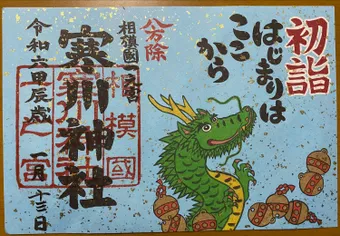 初詣
はじまりは
ここ
から
八方除
相模國一之宮
寒川神社
相模國
一宮
令和六甲辰歳 一月十三日